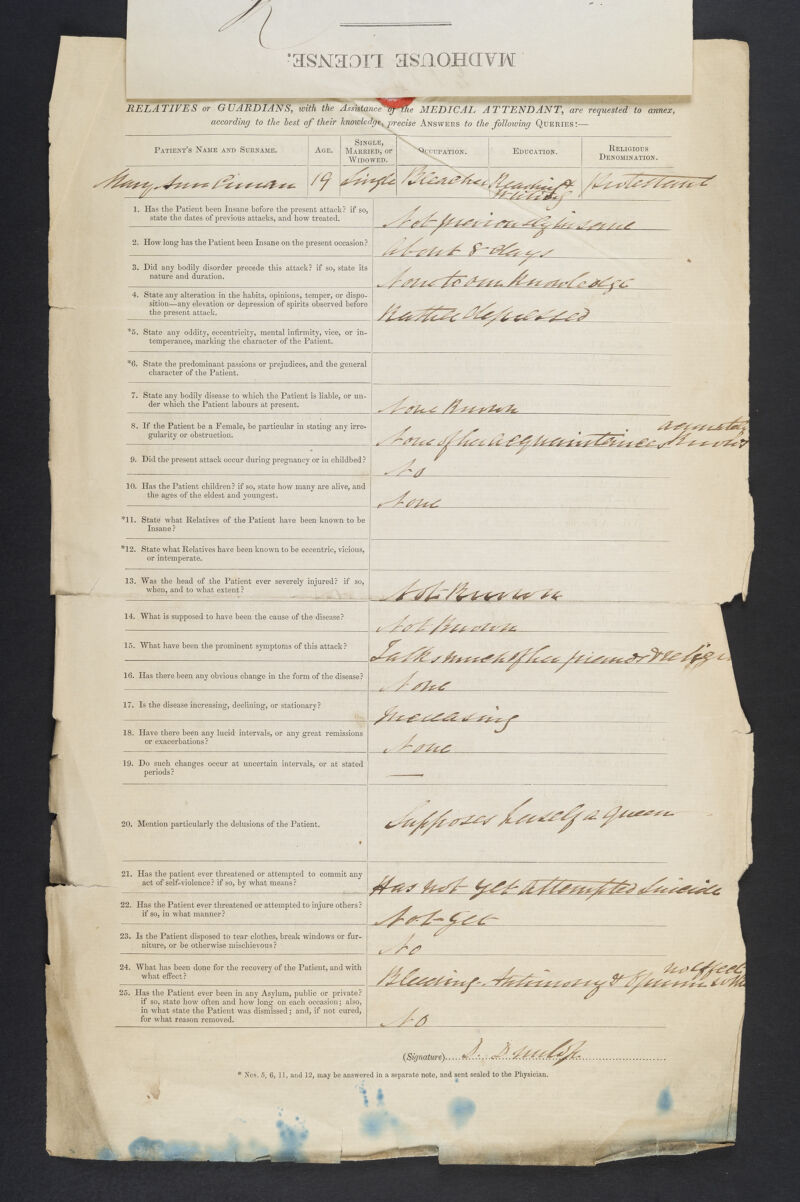 MADHOUSE LICENSE.
RELATIVES or GUARDIANS, with the Assistance of the MEDICAL ATTENDANT, are requested to annex,
according to the best of their knowledge, precise ANSWERS to the following QUERIES:—
PATIENT'S NAME AND SURNAME.
AGE.
SINGLE, MARRIED, OR WIDOWED.
OCCUPATION.
EDUCATION.
RELIGIOUS DENOMINATION.
Mary Ann 19 Single Bleacher Reading & Writing Protestant
1. Has the Patient been Insane before the present attack? if so,
state the dates of previous attacks, and how treated.
Not previously insane
2. How long has the Patient been Insane on the present occasion?
About 8 days
3. Did any bodily disorder precede this attack? if so, state its
nature and duration.
None to our Knowledge
4. State any alteration in the habits, opinions, temper, or dispo-
sition—any elevation or depression of spirits observed before
the present attack.
Rather depressed
*5. State any oddity, eccentricity, mental infirmity, vice, or in-
temperance, marking the character of the Patient.
*6. State the predominant passions or prejudices, and the general
character of the Patient.
7. State any bodily disease to which the Patient is liable, or un-
der which the Patient labours at present.
None Known
8. If the Patient be a Female, be particular in stating any irre-
gularity or obstruction.
None of her acquaintances Knows
9. Did the present attack occur during pregnancy or in childbed?
No
10. Has the Patient children? if so, state how many are alive, and
the ages of the eldest and youngest.
None
*11. State what Relatives of the Patient have been known to be
Insane?
*12. State what Relatives have been known to be eccentric, vicious,
or intemperate.
13. Was the head of the Patient ever severely injured? if so,
when, and to what extent?
Not Known
14. What is supposed to have been the cause of the disease?
Not Known
15. What have been the prominent symptoms of this attack?
Talks much of her friends &
16. Has there been any obvious change in the form of the disease?
None
17. Is the disease increasing, declining, or stationary?
Increasing
18. Have there been any lucid intervals, or any great remissions
or exacerbations?
None
19. Do such changes occur at uncertain intervals, or at stated
periods?
—
20. Mention particularly the delusions of the Patient.
Supposes herself a queen
21. Has the patient ever threatened or attempted to commit any
act of self-violence? if so, by what means?
Has not yet attempted Suicide
22. Has the Patient ever threatened or attempted to injure others?
if so, in what manner?
Not yet
23. Is the Patient disposed to tear clothes, break windows or fur-
niture, or be otherwise mischievous?
No
24. What has been done for the recovery of the Patient, and with
what effect?
no effect
Bleeding. Antimony & Opium
25. Has the Patient ever been in any Asylum, public or private?
if so, state how often and how long on each occasion; also,
in what state the Patient was dismissed; and, if not cured,
for what reason removed.
No
(Signature)..... D. Dunlop
* Nos. 5, 6, 11, and 12, may be answered in a separate note, and sent sealed to the Physician.